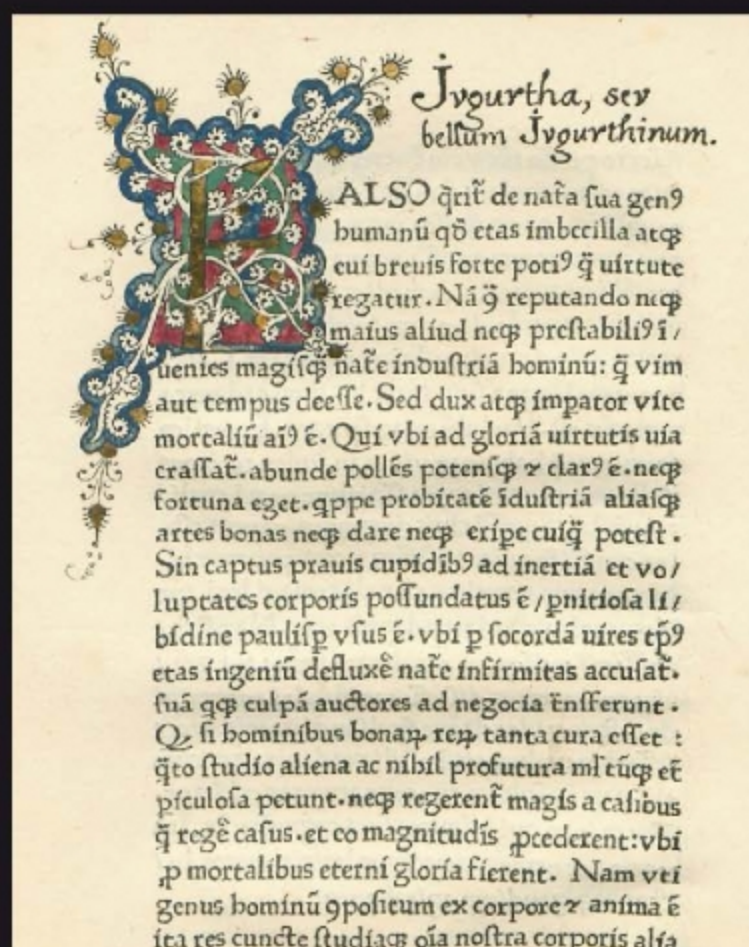 Jvgurtha, sev
bellum Jvgurthinum.
FALSO q̄rit̃ de nat̃a ſua genꝰ
humanū qđ etas imbecilla atqꝫ
eui breuis forte potiꝰ q̄̃ uirtute
regatur. Nā 9̄ reputando neqꝫ
maius aliud neqꝫ preſtabiliꝰ ī /
uenies magiſqꝫ nat̃e induſtriā hominū: q̄̃ vim
aut tempus deeſſe. Sed dux atqꝫ imꝑator vite
mortaliū aīꝰ ē. Qui vbi ad gloriā uirtutis uia
craſſat̃. abunde pollēs potenſqꝫ ⁊ clarꝰ ē. neqꝫ
fortuna eget. qppe probitatē īduſtriā aliaſqꝫ
artes bonas neqꝫ dare neqꝫ eriꝑe cuiq̄̃ poteſt .
Sin captus prauis cupidībꝰ ad inertiā et vo/
luptates corporis poſſundatus ē / ꝑnitioſa li/
bidine pauliſꝑ vſus ē. vbi ꝑ ſocordā uires tp̄ꝰ
etas ingeniū defluxē nat̃e infirmitas accuſat̃.
ſuā qqꝫ culpā auctores ad negocia t̄nſferunt .
Qꝫ ſi hominibus bonaꝝ reꝝ tanta cura eſſet :
q̄̃to ſtudio aliena ac nihil profutura ml̄tūqꝫ et̄
ꝑiculoſa petunt. neqꝫ regerent̃ magis a caſibus
q̄̃ regē caſus. et eo magnitudīs ꝓcederent: vbi
ꝓ mortalibus eterni gloria fierent. Nam vti
genus hominū ꝯpoſitum ex corpore ⁊ anima ē
ita res cuncte ſtudiaqꝫ oīa noſtra corporis alia